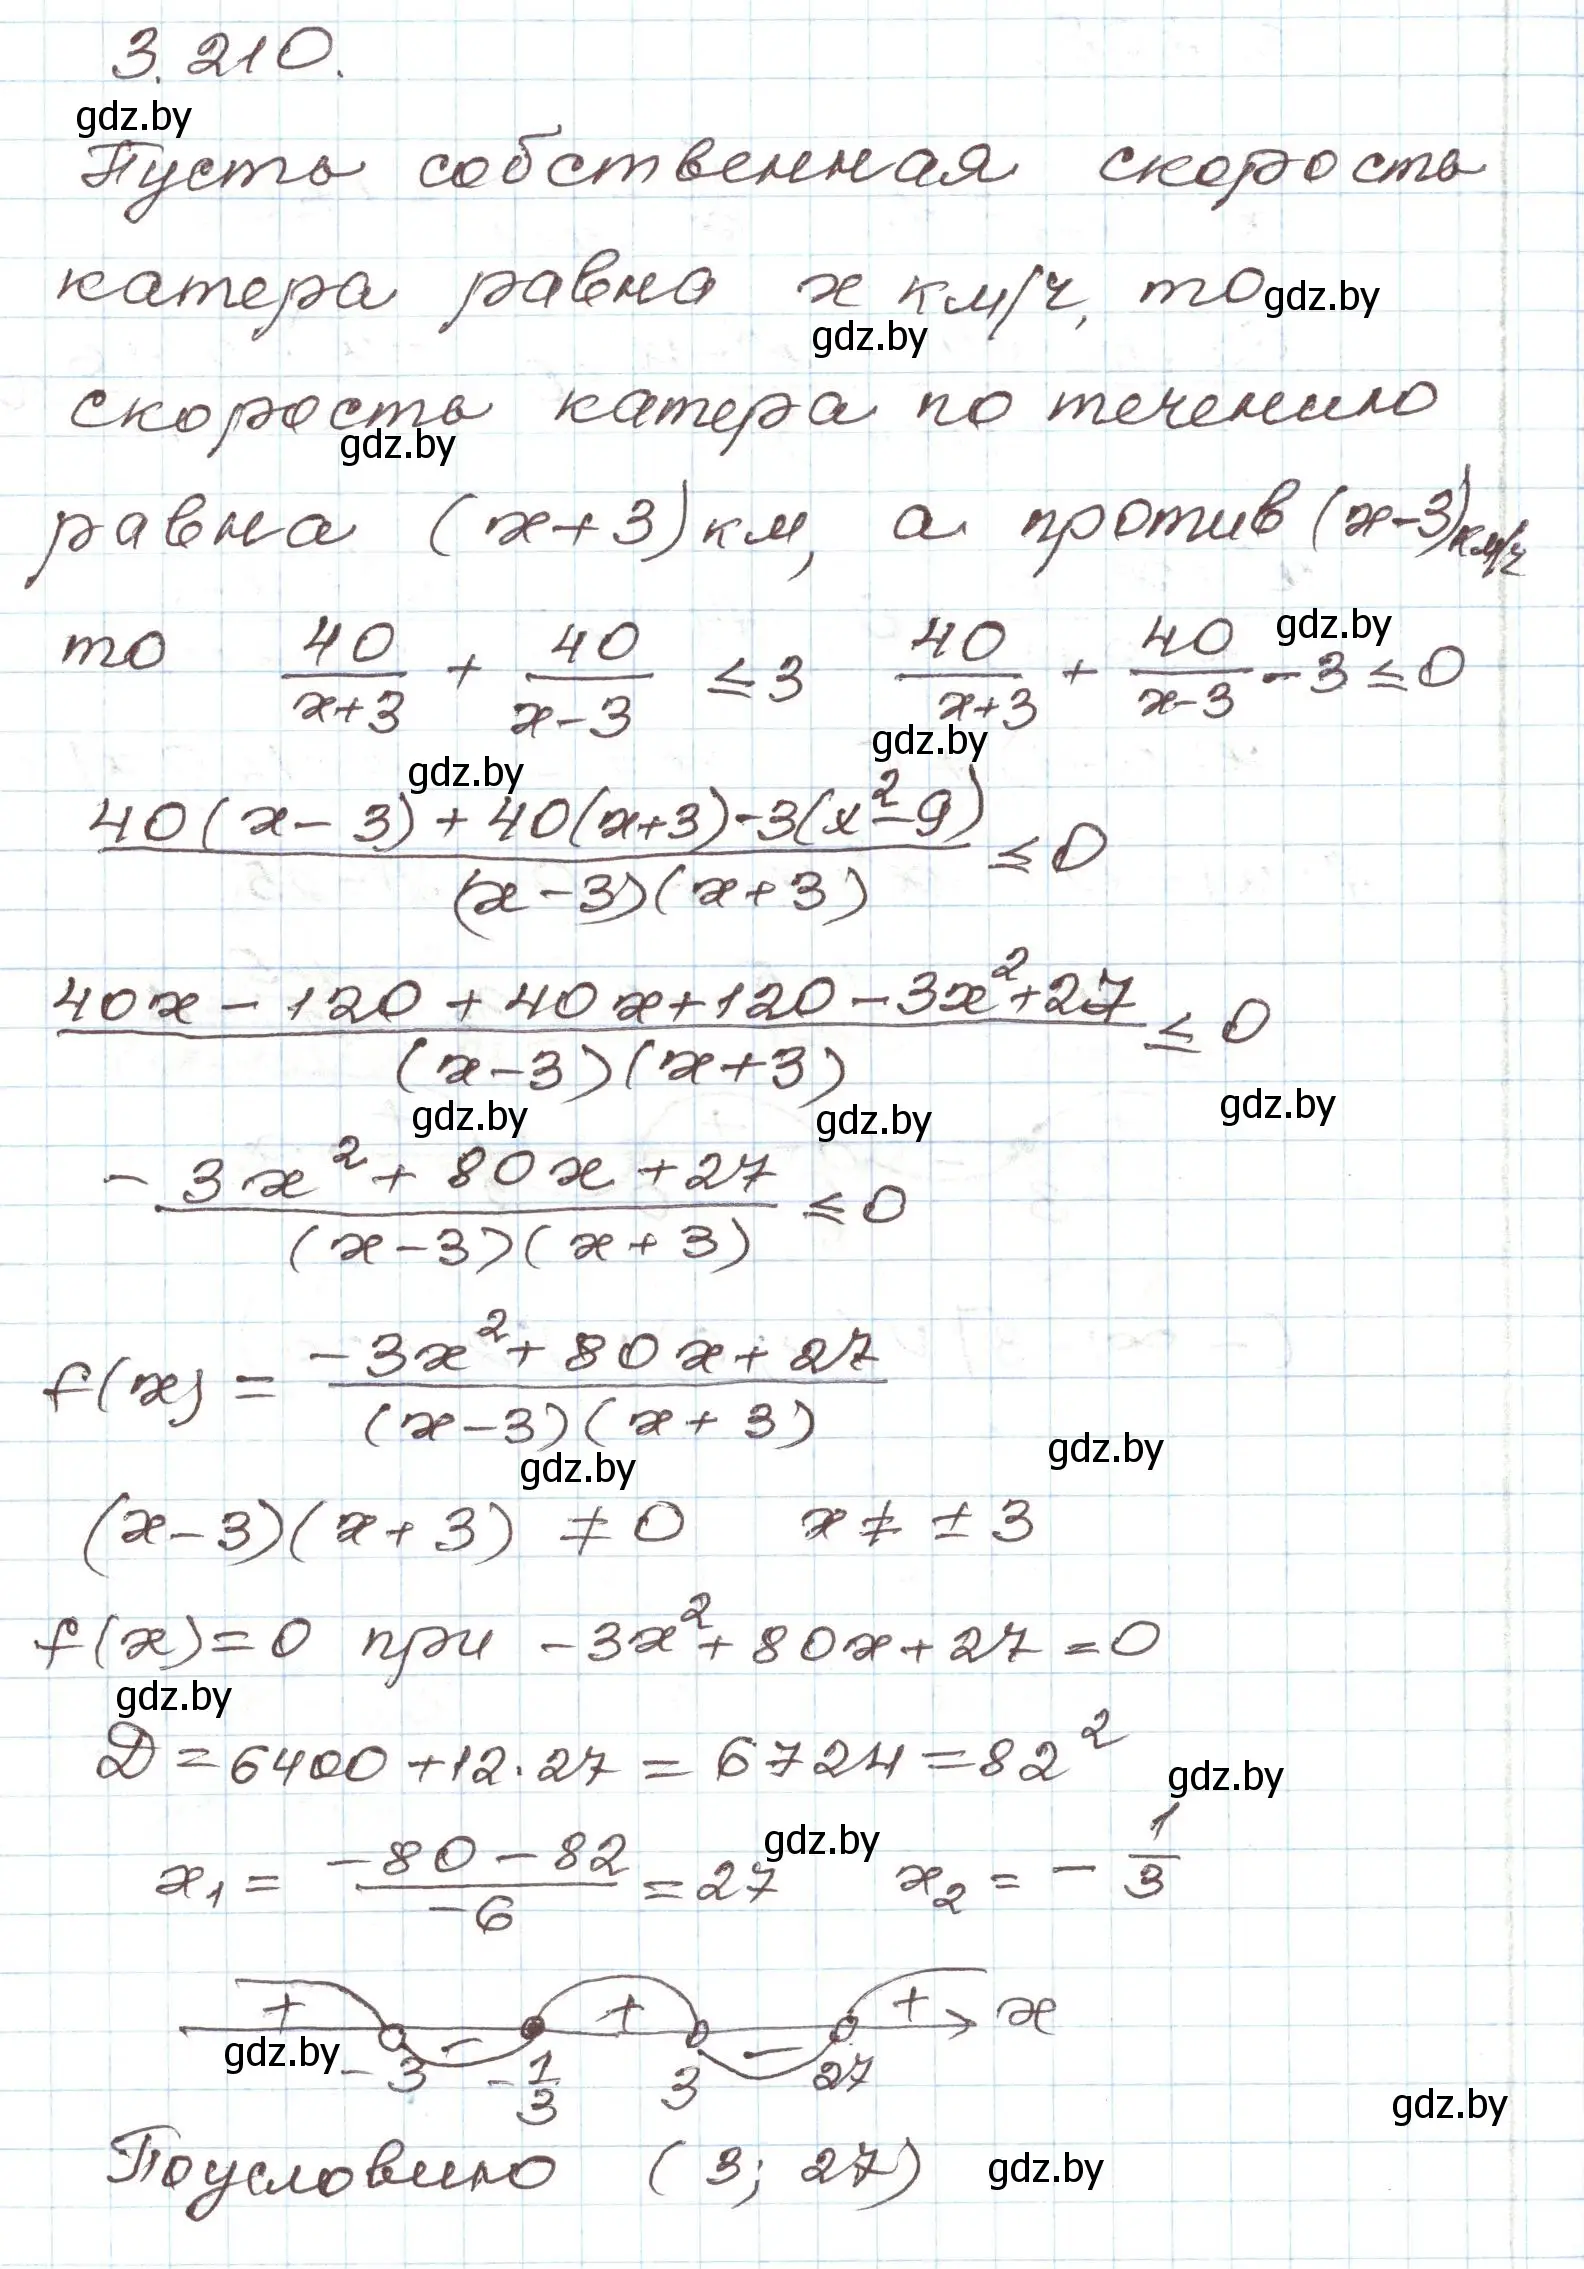 3.210.
gdz.by
Пусть собственная скорость
катера равна x км/ч, то gdz.by
gdz.by
скорость катера по течению
gdz.by
равна (x+3) км, а против (x-3) км/ч
то 40/(x+3) + 40/(x-3) ≤ 3   40/(x+3) + 40/(x-3) - 3 ≤ 0 gdz.by
gdz.by gdz.by
(40(x-3) + 40(x+3) - 3(x²-9))/((x-3)(x+3)) ≤ 0
(40x - 120 + 40x + 120 - 3x² + 27)/((x-3)(x+3)) ≤ 0
gdz.by gdz.by gdz.by
(-3x² + 80x + 27)/((x-3)(x+3)) ≤ 0
f(x) = (-3x² + 80x + 27)/((x-3)(x+3))
gdz.by gdz.by
(x-3)(x+3) ≠ 0   x ≠ ±3
f(x) = 0 при -3x² + 80x + 27 = 0
gdz.by
D = 6400 + 12·27 = 6724 = 82²
gdz.by
gdz.by
x₁ = (-80 - 82)/(-6) = 27   x₂ = -1/3
+ - + - + x
gdz.by -3 -1/3 3 27
gdz.by
Поусловию (3; 27) gdz.by